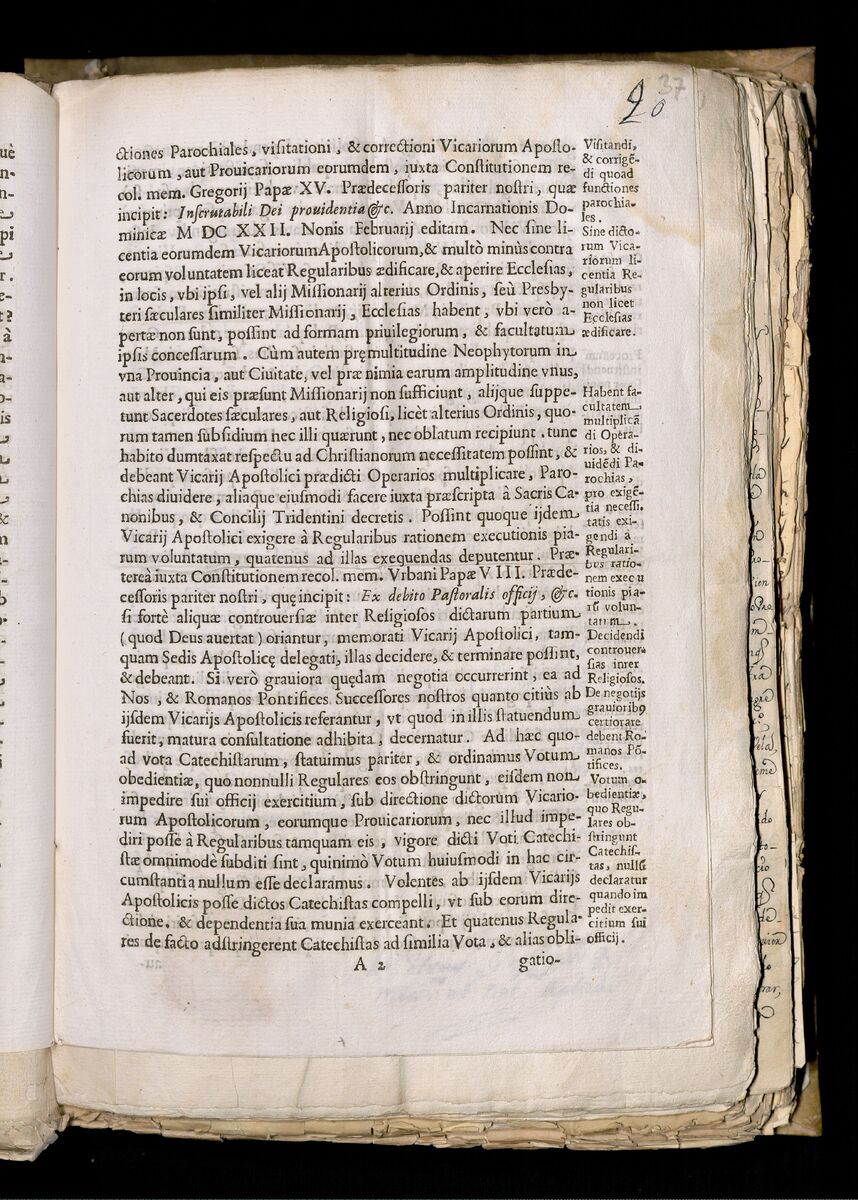 20
37
ctiones Parochiales, visitationi, & correctioni Vicariorum Aposto-
licorum, aut Prouicariorum eorumdem, iuxta Constitutionem re-
col. mem. Gregorij Papæ XV. Prædecessoris pariter nostri, quæ
incipit: Inscrutabili Dei prouidentia &c. Anno Incarnationis Do-
minicæ M DC XXII. Nonis Februarij editam. Nec sine li-
centia eorumdem Vicariorum Apostolicorum, & multò minùs contra
eorum voluntatem liceat Regularibus ædificare, & aperire Ecclesias,
in locis, vbi ipsi, vel alij Missionarij alterius Ordinis, seù Presby-
teri sæculares similiter Missionarij, Ecclesias habent, vbi verò a-
pertæ non sunt, possint ad formam priuilegiorum, & facultatum
ipsis concessarum. Cùm autem prę multitudine Neophytorum in
vna Prouincia, aut Ciuitate, vel præ nimia earum amplitudine vnus,
aut alter, qui eis præsunt Missionarij non sufficiunt, alijque suppe-
tunt Sacerdotes sæculares, aut Religiosi, licèt alterius Ordinis, quo-
rum tamen subsidium nec illi quærunt, nec oblatum recipiunt. tunc
habito dumtaxat respectu ad Christianorum necessitatem possint, &
debeant Vicarij Apostolici prædicti Operarios multiplicare, Paro-
chias diuidere, aliaque eiusmodi facere iuxta præscripta à Sacris Ca-
nonibus, & Concilij Tridentini decretis. Possint quoque ijdem
Vicarij Apostolici exigere à Regularibus rationem executionis pia-
rum voluntatum, quatenus ad illas exequendas deputentur. Præ-
tereà iuxta Constitutionem recol. mem. Vrbani Papæ VIII. Præde-
cessoris pariter nostri, quę incipit: Ex debito Pastoralis officij, &c.
si fortè aliquæ controuersiæ inter Religiosos dictarum partium
(quod Deus auertat) oriantur, memorati Vicarij Apostolici, tam-
quam Sedis Apostolicę delegati, illas decidere, & terminare possint,
& debeant. Si verò grauiora quędam negotia occurrerint, ea ad
Nos, & Romanos Pontifices Successores nostros quanto citiùs ab
ijsdem Vicarijs Apostolicis referantur, vt quod in illis statuendum
fuerit, matura consultatione adhibita, decernatur. Ad hæc quo-
ad vota Catechistarum, statuimus pariter, & ordinamus Votum
obedientiæ, quo nonnulli Regulares eos obstringunt, eisdem non
impedire sui officij exercitium, sub directione dictorum Vicario-
rum Apostolicorum, eorumque Prouicariorum, nec illud impe-
diri posse à Regularibus tamquam eis, vigore dicti Voti Catechi-
stæ omnimodè subditi sint, quinimò Votum huiusmodi in hac cir-
cumstantia nullum esse declaramus. Volentes ab ijsdem Vicarijs
Apostolicis posse dictos Catechistas compelli, vt sub eorum dire-
ctione, & dependentia sua munia exerceant. Et quatenus Regula-
res de facto adstringerent Catechistas ad similia Vota, & alias obli-
A 2
gatio-
Visitandi,
& corrigē-
di quoad
functiones
parochia-
les.
Sine dicto-
rum Vica-
riorum li-
centia Re-
gularibus
non licet
Ecclesias
ædificare.
Habent fa-
cultatem
multiplicā
di Opera-
rios, & di-
uidēdi Pa-
rochias,
pro exigē-
tia necessi-
tatis exi-
gendi à
Regulari-
bus ratio-
nem execu
tionis pia-
rū volun-
tatum.
Decidendi
controuer-
sias inter
Religiosos.
De negotijs
grauioribꝰ
certiorare
debent Ro-
manos Pō-
tifices.
Votum o-
bedientiæ,
quo Regu-
lares ob-
stringunt
Catechis-
tas, nullū
declaratur
quando im
pedit exer-
citium sui
officij.